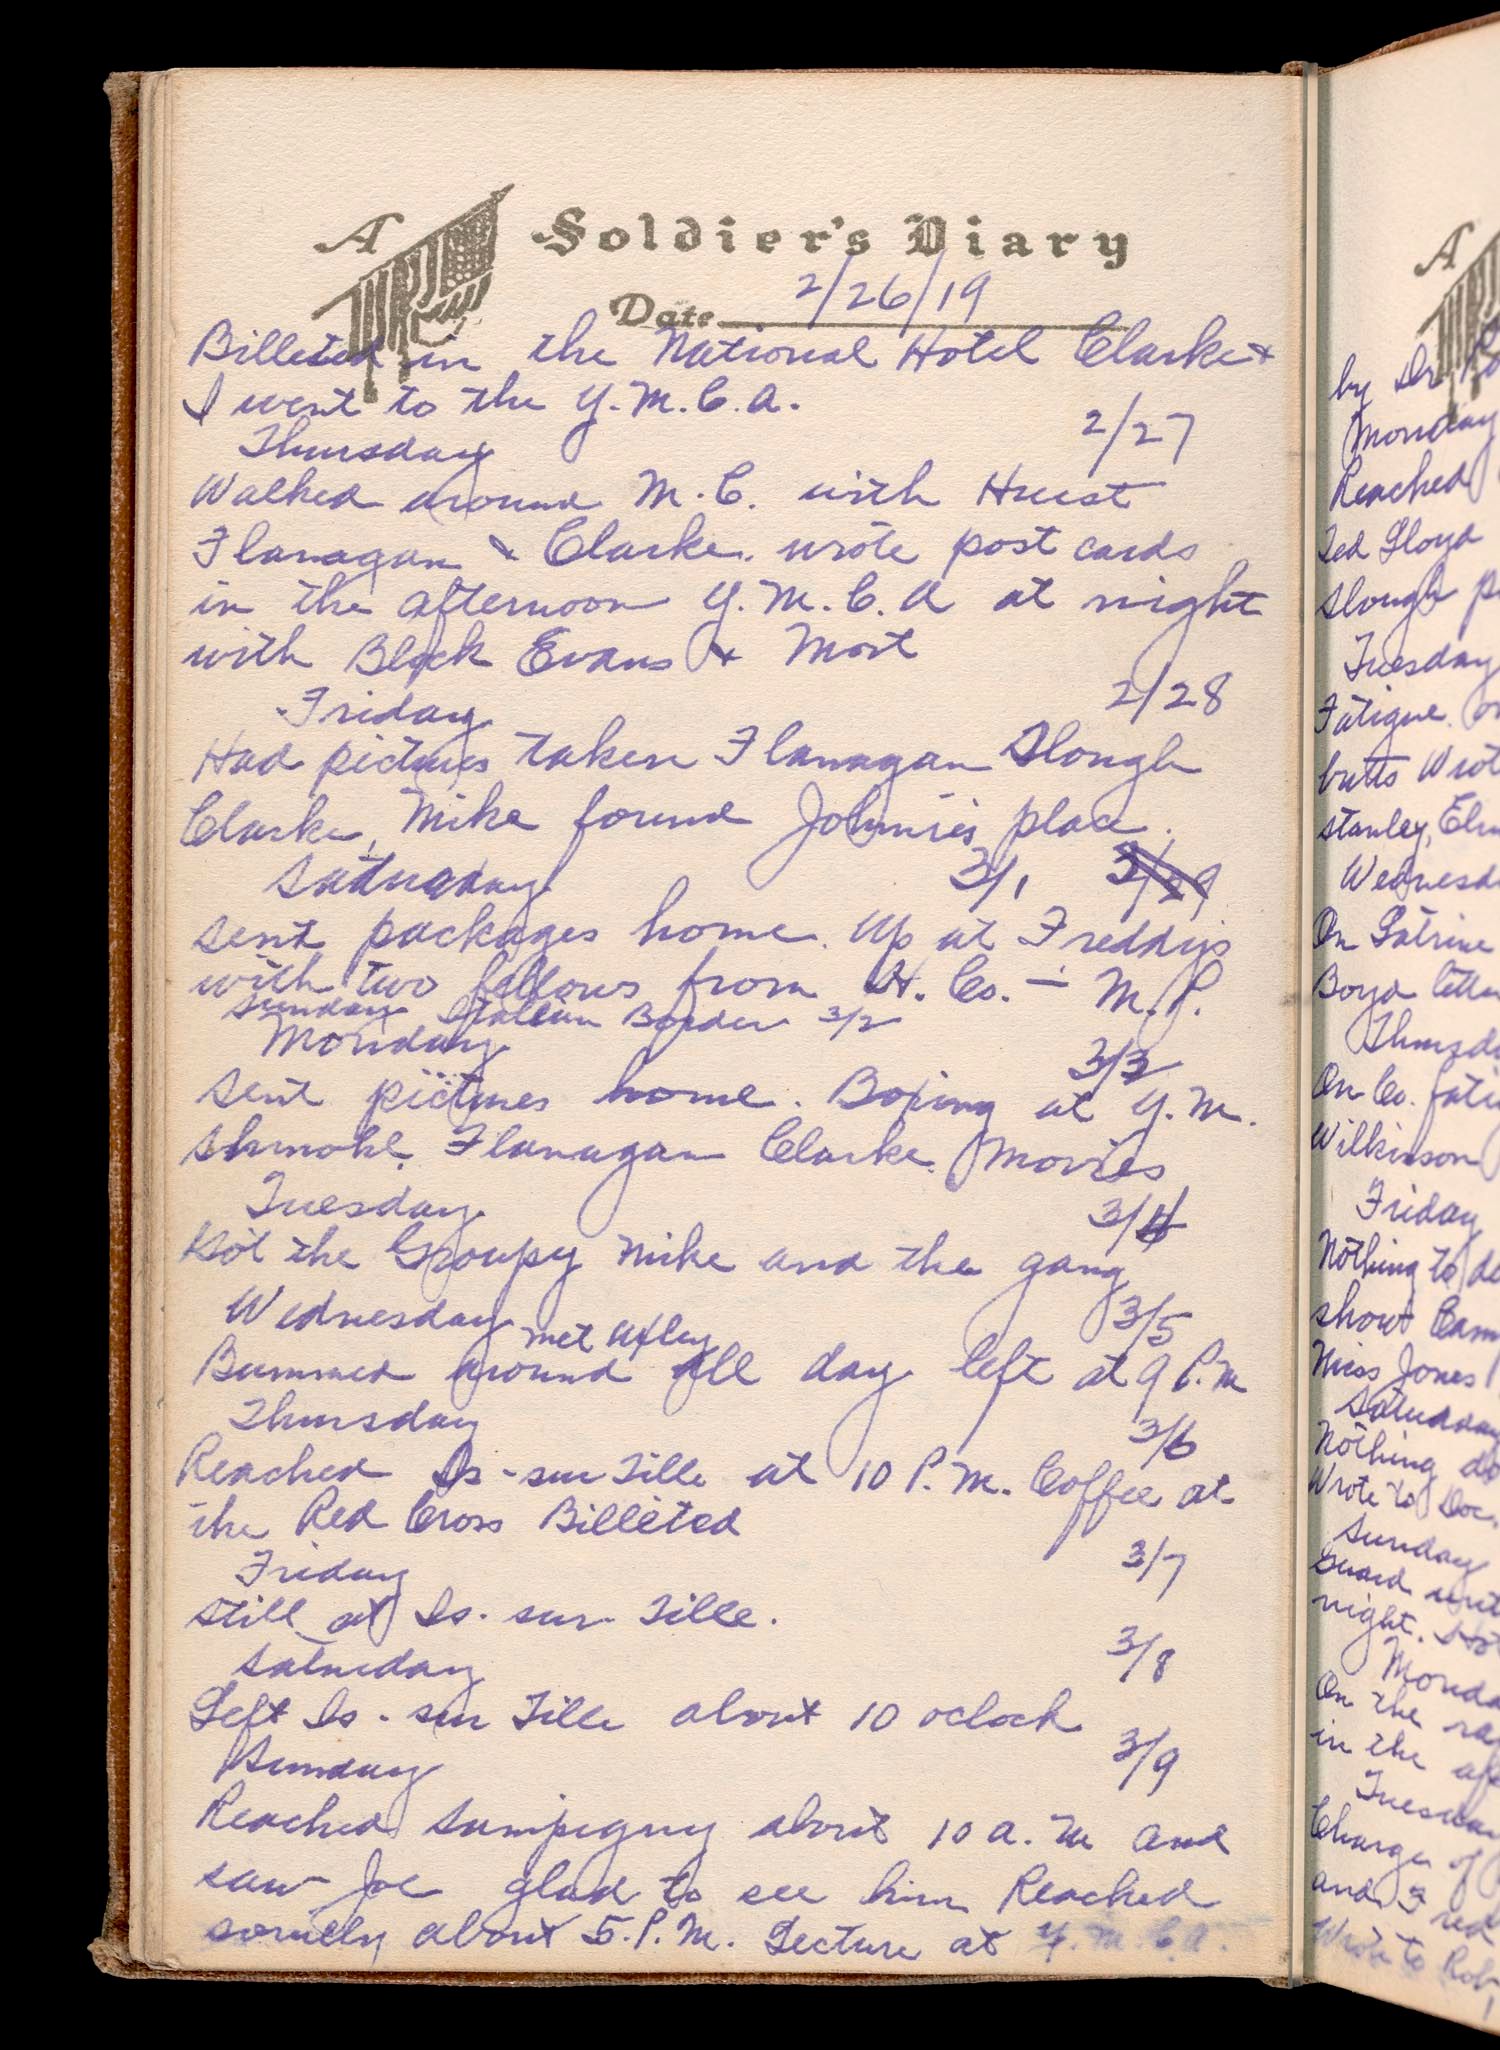 A Soldier's Diary
Date 2/26/19
Billeted in the National Hotel Clarke +
I went to the Y.M.C.A.
Thursday 2/27
Walked around M.C. with Hurst
Flanagan + Clarke. wrote post cards
in the afternoon Y.M.C.A at night
with Block Evans + Mort
Friday 2/28
Had pictures taken Flanagan Slough
Clarke, Mike found Johnnies place.
Saturday 3/1
sent packages home. Up at Freddys
with two fellows from H. Co. - M.P.
Sunday Italian Border 3/2
Monday 3/3
sent pictures home. Boxing at Y.M.
Flanagan Clarke. Movies
Tuesday 3/4
Got the Groupy Mike and the gang
Wednesday 3/5
met Uxley
Bummed around all day left at 9 P.M
Thursday 3/6
Reached Is-sur Tille at 10 P.M. Coffee at
the Red Cross Billeted
Friday 3/7
Still at Is-sur-Tille.
Saturday 3/8
Left Is-sur Tille about 10 oclock
Sunday 3/9
Reached Sampigny about 10 a.m and
saw Joe glad to see him Reached
about 5.P.M. Lecture at Y.M.C.A.
A
by Dr
Monday
Reached
Ted Lloyd
Slough
Tuesday
Fatigue.
butts Wrot
Stanley,
Wednesd
On Latrine
Boyd
Thursd
On Co. fati
Wilkinson
Friday
Nothing to do
show
Miss Jones
Saturday
Nothing do
Wrote to Doc.
Sunday
Guard
night.
Monda
On the
in the af
Tuesday
Charge of
and
Wrote to Rob